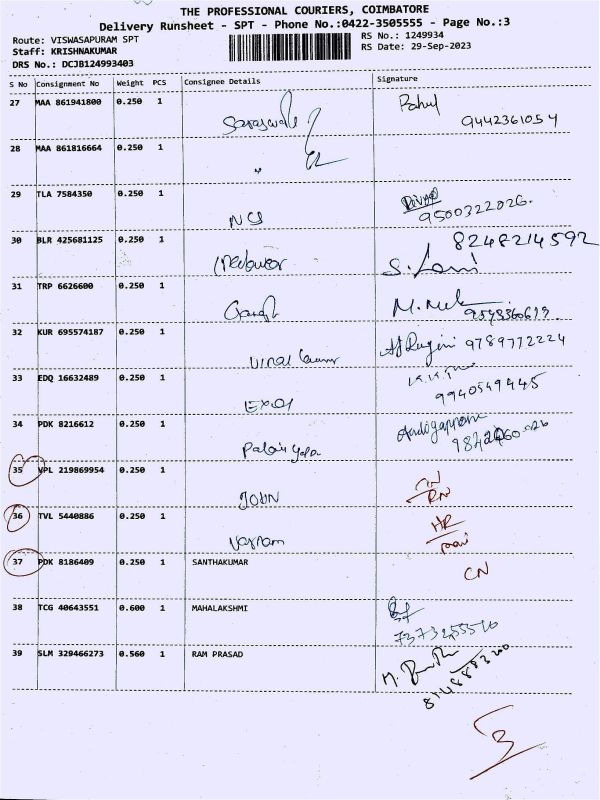 THE PROFESSIONAL COURIERS, COIMBATORE
Delivery Runsheet - SPT - Phone No.:0422-3505555 - Page No.:3
Route: VISWASAPURAM SPT RS No.: 1249934
Staff: KRISHNAKUMAR RS Date: 29-Sep-2023
DRS No.: DCJB124993403
S No Consignment No Weight PCS Consignee Details Signature
27 MAA 861941800 0.250 1 Rahul
9442361054
28 MAA 861816664 0.250 1
"
29 TLA 7584350 0.250 1 Divya
NCS 9500322026.
30 BLR 425681125 0.250 1 8248214592
S.
31 TRP 6626600 0.250 1 M.
Ganesh
32 KUR 695574187 0.250 1 9789772224
Viral
33 EDQ 16632489 0.250 1
9940549445
34 PDK 8216612 0.250 1
Palani
35 VPL 219869954 0.250 1
JOHN RN
36 TVL 5440886 0.250 1 HR
37 PDK 8186409 0.250 1 SANTHAKUMAR
CN
38 TCG 40643551 0.600 1 MAHALAKSHMI
39 SLM 329466273 0.560 1 RAM PRASAD
M.
3